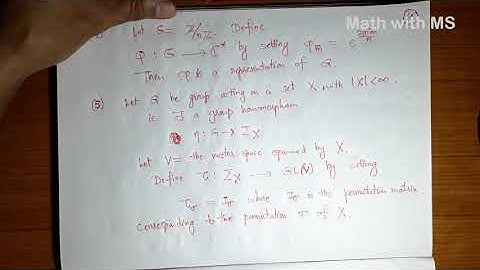 Math with MS
Let G = ℤ/nℤ. Define
φ : G → ℂ* by setting φ_m = e^{2πim/n}
Then φ is a representation of G.
(5) Let G be group acting on a set X with |X| < ∞,
ie ∃ a group homomorphism
η : G → Σ_X
Let V = the vector space spanned by X.
Define τ : Σ_X → GL(V) by setting
τ_σ = I_σ where I_σ is the permutation matrix
corresponding to the permutation σ of X.